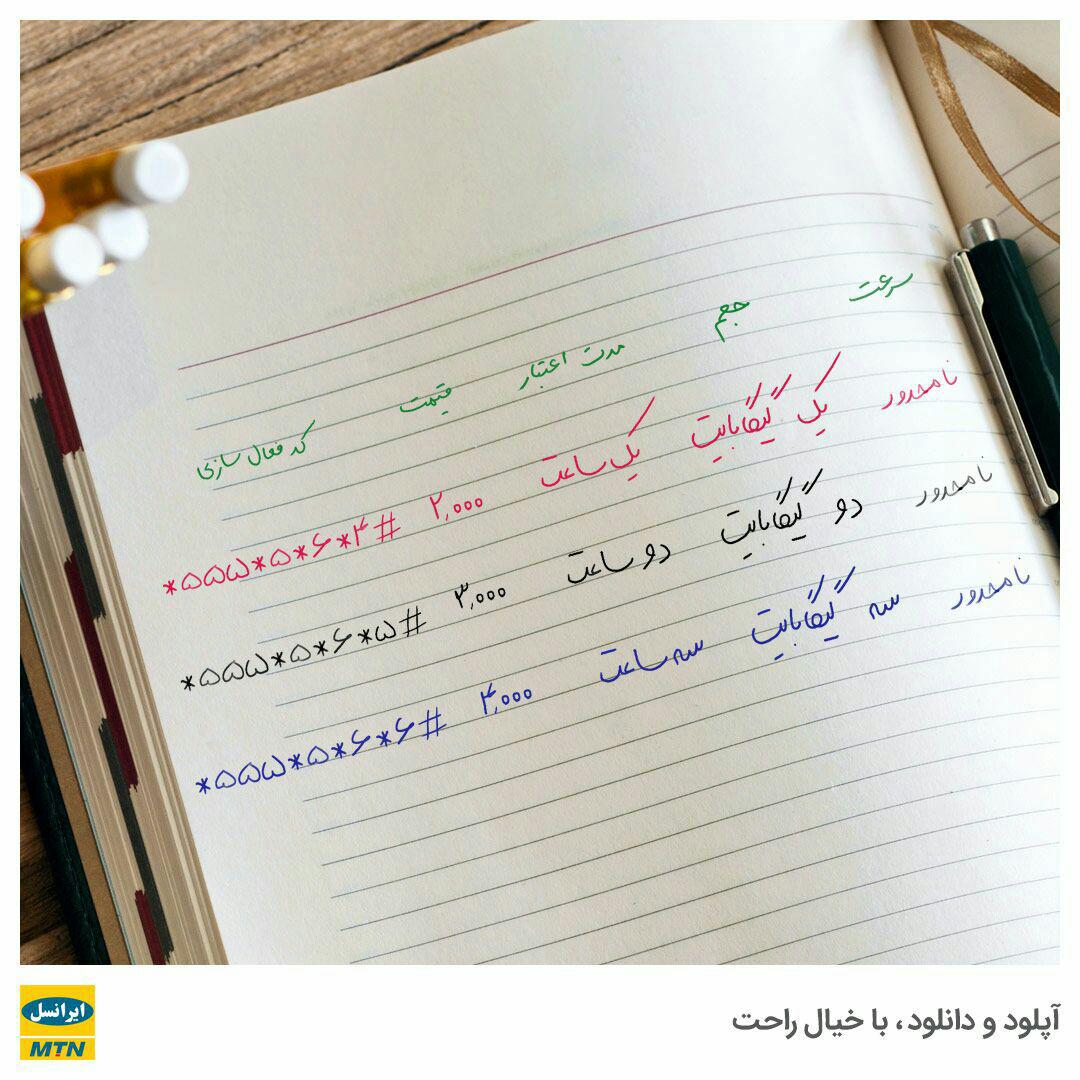 سرعت حجم مدت اعتبار قیمت کد فعال سازی
نامحدود یک گیگابایت یک ساعت ۲,۰۰۰ *۵۵۵*۵*۶*۴#
نامحدود دو گیگابایت دو ساعت ۳,۰۰۰ *۵۵۵*۵*۶*۵#
نامحدود سه گیگابایت سه ساعت ۴,۰۰۰ *۵۵۵*۵*۶*۶#
آپلود و دانلود، با خیال راحت
ایرانسل
MTN